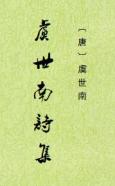 〔唐〕虞世南
虞世南詩集